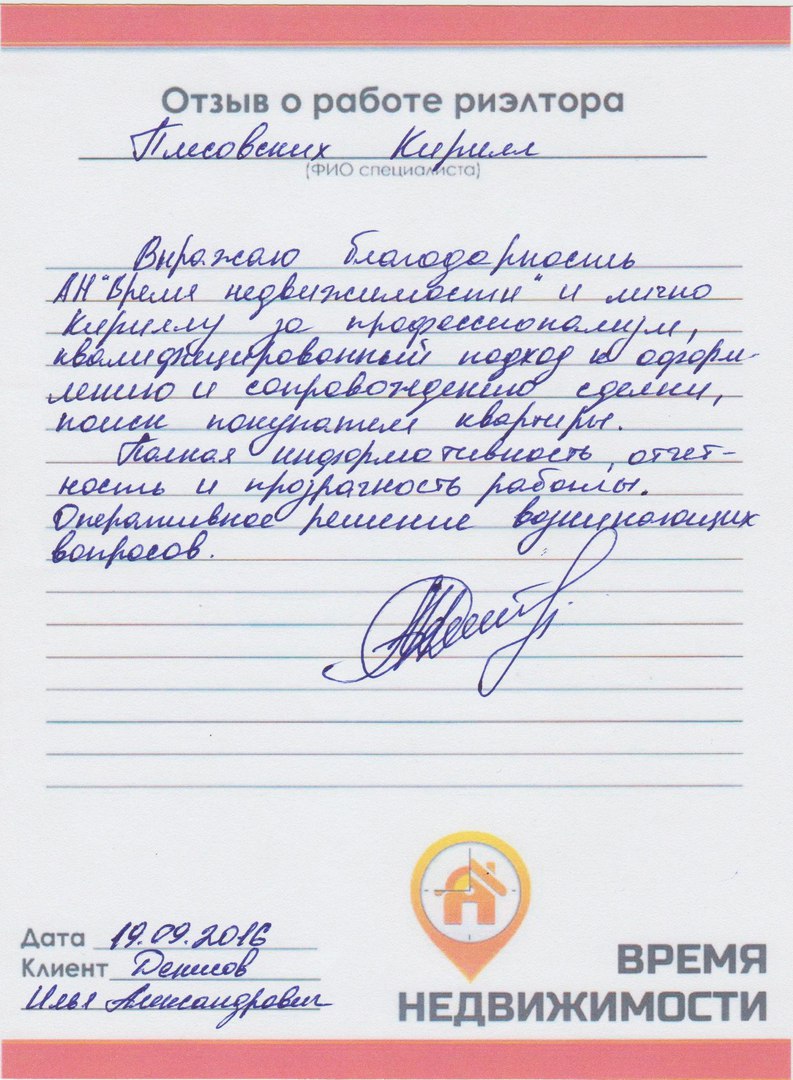 Отзыв о работе риэлтора
Плесовских Кирилл
(ФИО специалиста)
Выражаю благодарность
АН "Время недвижимости" и лично
Кириллу за профессионализм,
квалифицированный подход к оформ-
лению и сопровождению сделки,
поиск покупателя квартиры.
Полная информативность, отчет-
ность и прозрачность работы.
Оперативное решение возникающих
вопросов.
Дата 19.09.2016
Клиент Денисов
Илья Александрович
ВРЕМЯ
НЕДВИЖИМОСТИ